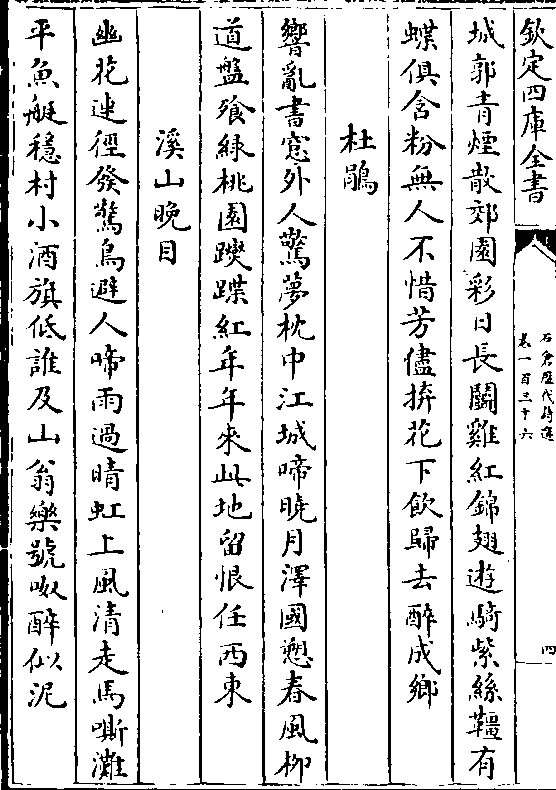 欽定四庫全書
石倉歷代詩選
卷一百三十六
四
城郭青煙散郊園彩日長鬭雞紅錦翅遊騎紫絲韁有
蝶俱含粉無人不惜芳儘拚花下飲歸去醉成鄉
杜鵑
響亂書窻外人驚夢枕中江城啼曉月澤國愬春風柳
道盤飱緑桃園躞蹀紅年年來此地留恨任西東
溪山晚目
幽花迷徑發驚鳥避人啼雨過晴虹上風清走馬嘶灘
平魚艇穏村小酒旗低誰及山翁樂號呶醉似泥